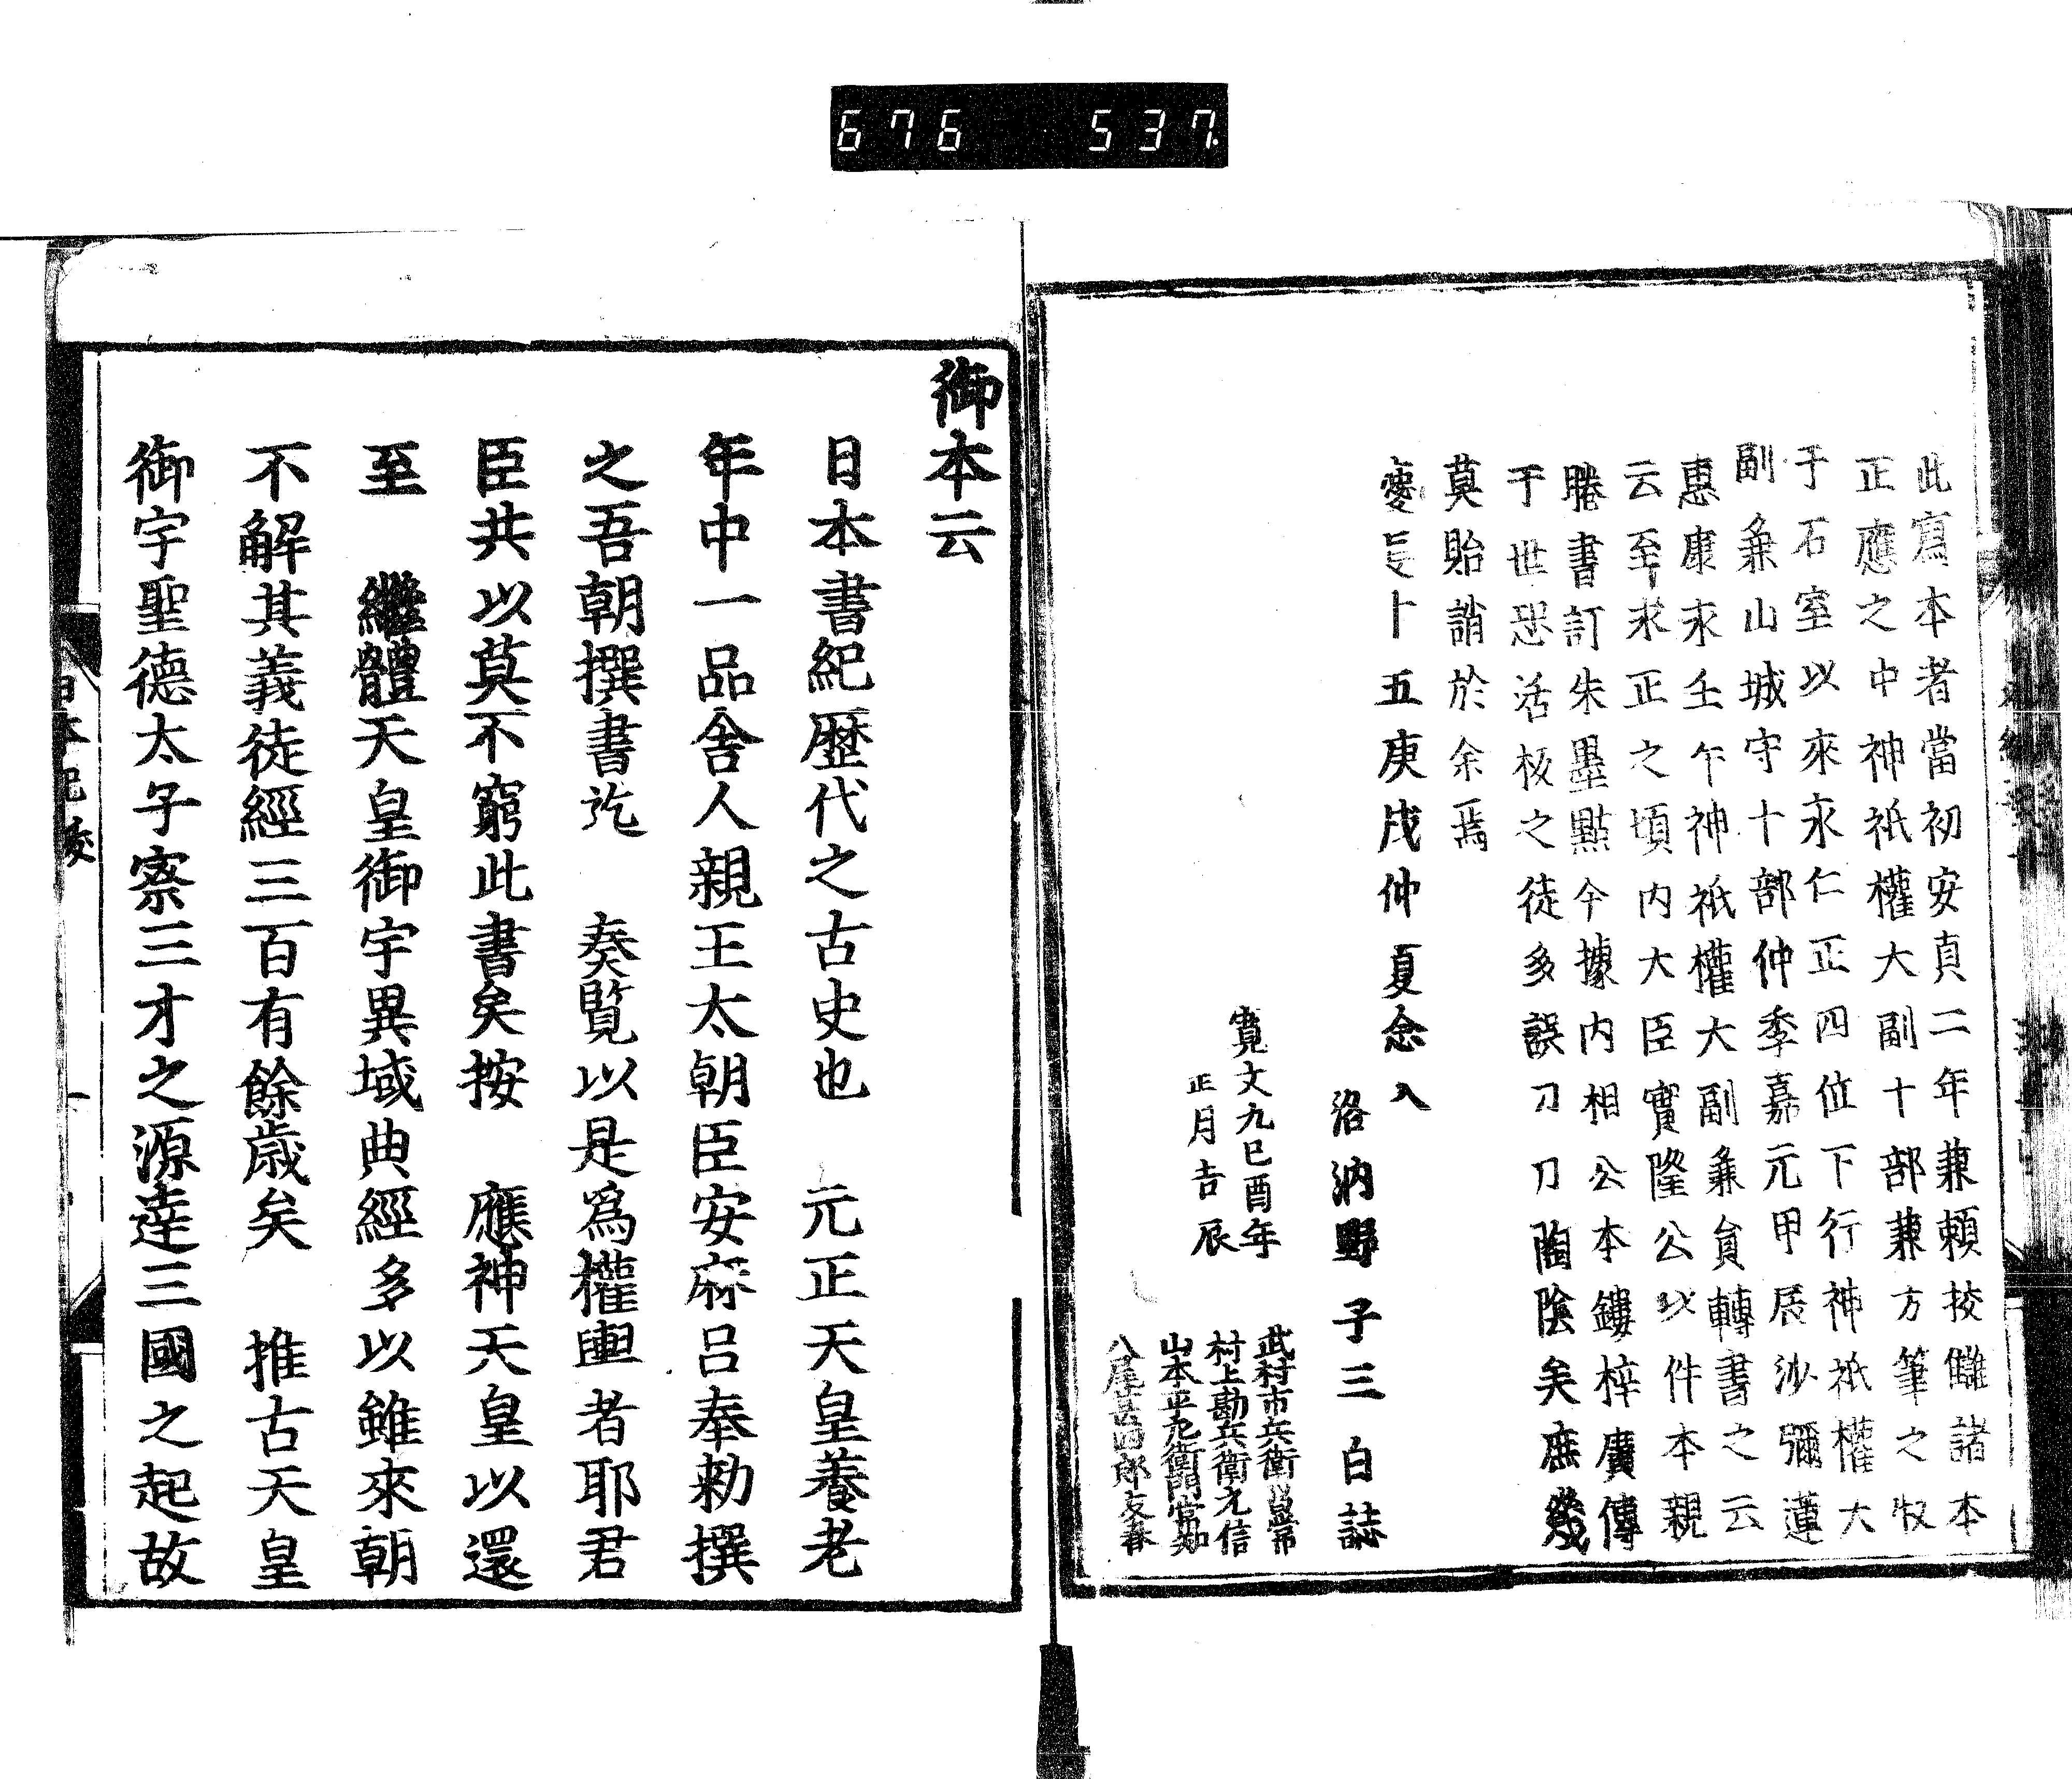 676 537
此寫本者當初安貞二年兼頼挍讎諸本
正應之中神祇權大副十部兼方筆之牧
于石室以來永仁正四位下行神祇權大
副兼山城守十部仲季嘉元甲辰沙彌蓮
惠康永壬午神祇權大副兼貟轉書之云
云至永正之頃内大臣實隆公以件本親
賸書訂朱墨點今據内相公本鏤梓廣傳
于世恐活板之徒多誤刀刀陶陰矣庶幾
莫貽誚於余焉
五庚戌仲夏念八
洛汭野子三白誌
寛文九已酉年
正月吉辰
武村市兵衛昌常
村上勘兵衛元信
山本平左衛門常知
八尾甚四郎友春
御本云
日本書紀歴代之古史也 元正天皇養老
年中一品舎人親王太朝臣安麻呂奉勅撰
之吾朝撰書迄 奏覧以是爲權輿者耶君
臣共以莫不窮此書矣按 應神天皇以還
至 繼體天皇御宇異域典經多以雖來朝
不解其義徒經三百有餘歳矣 推古天皇
御宇聖德太子察三才之源達三國之起故
日本紀
一